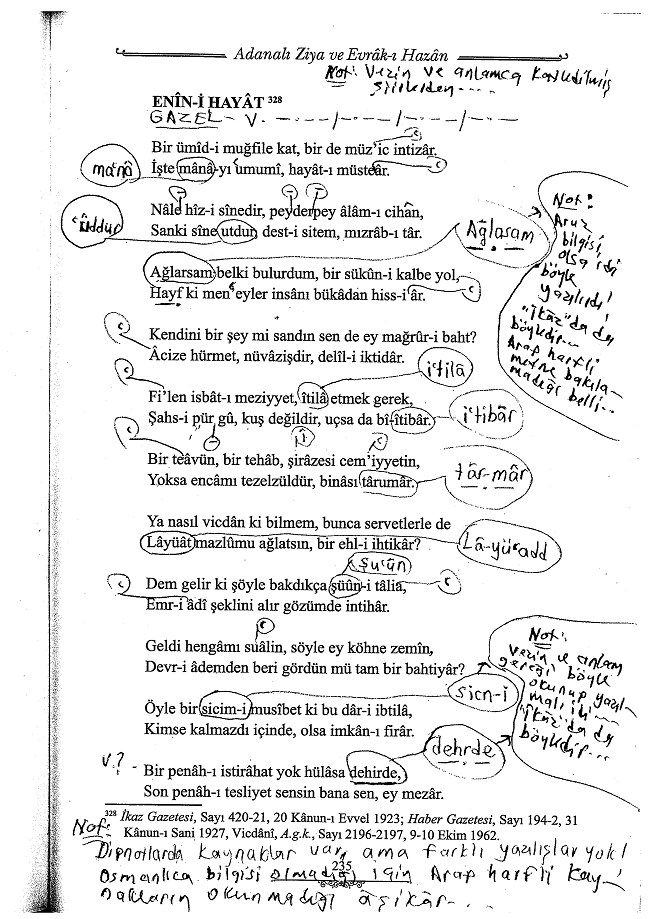 Adanalı Ziya ve Evrâk-ı Hazân
Not: Vezin ve anlamca katledilmiş
şiirlerden....
ENÎN-İ HAYÂT 328
GAZEL - V. -.--/-.--/-.--/-.-
Bir ümîd-i muğfile kat, bir de müz'ic intizâr.
ma'nâ
İşte mânâ-yı umumî, hayât-ı müsteâr.
Nâle hîz-i sînedir, peyderpey âlâm-ı cihân,
'ûddur
Sanki sîne utdur, dest-i sitem, mızrâb-ı târ.
Ağlasam
Not:
Aruz
bilgisi
olsa idi
böyle
yazılırdı!
"İkâz"da da
böyledir...
Arap harfli
metne bakıla-
madığı belli...
Ağlarsam belki bulurdum, bir sükûn-i kalbe yol,
Hayf ki men eyler insânı bükâdan hiss-i âr.
Kendini bir şey mi sandın sen de ey mağrûr-i baht?
Âcize hürmet, nüvâzişdir, delîl-i iktidâr.
i'tilâ
Fi'len isbât-ı meziyyet, îtilâ etmek gerek,
Şahs-i pür gû, kuş değildir, uçsa da bî-îtibâr.
i'tibâr
Bir teâvün, bir tehâb, şirâzesi cem'iyyetin,
Yoksa encâmı tezelzüldür, binâsı târumâr.
târ-mâr
Ya nasıl vicdân ki bilmem, bunca servetlerle de
Lâyüât mazlûmu ağlatsın, bir ehl-i ihtikâr?
Lâ-yü'add
Şu'ûn
Dem gelir ki şöyle bakdıkça şüûn-i tâlia,
Emr-i âdî şeklini alır gözümde intihâr.
Geldi hengâmı suâlin, söyle ey köhne zemîn,
Devr-i âdemden beri gördün mü tam bir bahtiyâr?
Not:
Vezin ve anlam
gereği böyle
okunup yazıl-
malı idi
"İkâz"da da
böyledir...
sicn-i
Öyle bir sicim-i musîbet ki bu dâr-i ibtilâ,
Kimse kalmazdı içinde, olsa imkân-ı firâr.
dehrde
V.? -
Bir penâh-ı istirâhat yok hülâsa dehirde,
Son penâh-ı tesliyet sensin bana sen, ey mezâr.
328 İkaz Gazetesi, Sayı 420-21, 20 Kânun-ı Evvel 1923; Haber Gazetesi, Sayı 194-2, 31
Kânun-ı Sani 1927, Vicdânî, A.g.k., Sayı 2196-2197, 9-10 Ekim 1962.
Not:
Dipnotlarda kaynaklar var, ama farklı yazılışlar yok!
235
Osmanlıca bilgisi olmadığı için Arap harfli kay-
nakların okunmadığı âşikâr...